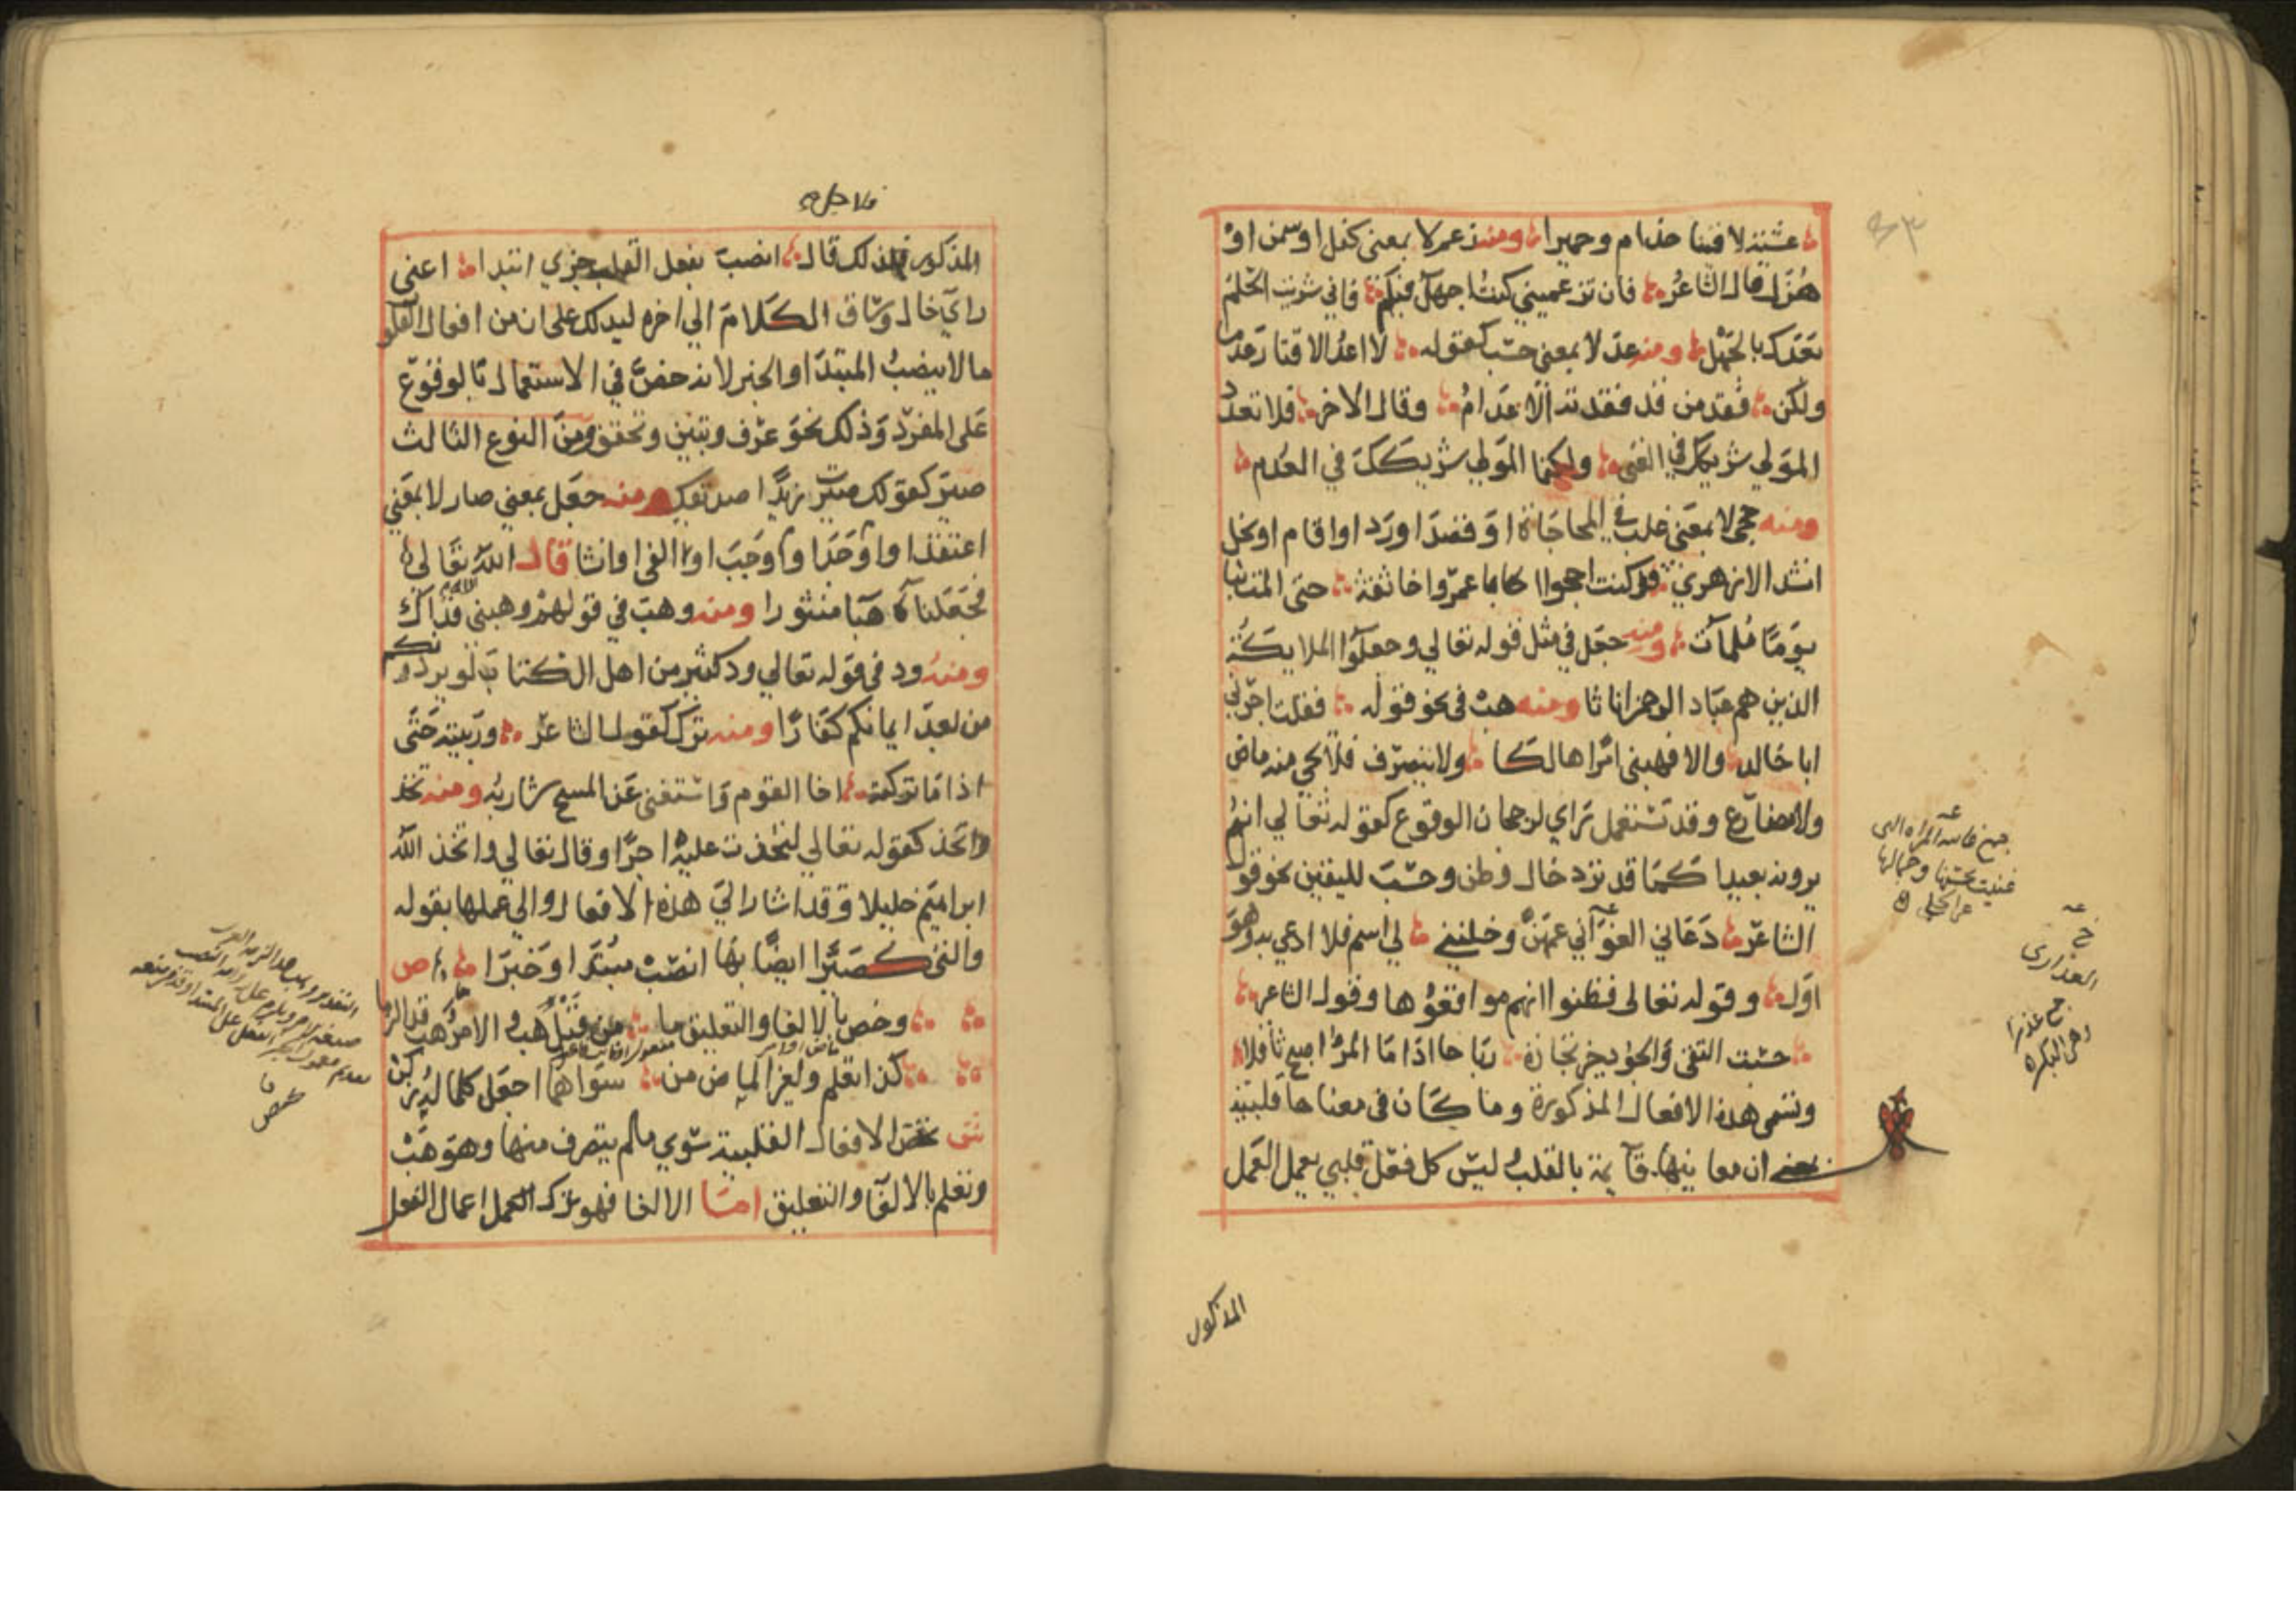 عشية لاقينا جذام وحميرا ومنه زعم لا بمعنى كفل او سمن او
هزل قال الشاعر فان تزعميني كنت اجهل فيكم فاني شريت الحلم
بعدك بالجهل ومنه عد لا بمعنى حسب كقوله لا اعد الاقتار عدما
ولكن فقد من قد فقدته الاعدام وقال الاخر فلا تعدد
المولي شريكك في الغنى ولكنما المولي شريكك في العدم
ومنه حجى لا بمعنى غلب في المحاجاة او قصد او رد او اقام او بخل
انشد الازهري قد كنت احجوا ابا عمرو اخا ثقة حتى المت بنا
يوما ملمات ومنه جعل في مثل قوله تعالي وجعلوا الملايكة
الذين هم عباد الرحمن اناثا ومنه هب في نحو قوله فقلت اجرني
ابا خالد والا فهبني امرا هالكا ولا يتصرف فلا يجي منه ماض
ولا مضارع وقد تستعمل راي لرجحان الوقوع كقوله تعالي انهم
يرونه بعيدا كما قد ترد خال وظن وحسب لليقين نحو قول
الشاعر دعاني الغواني عمهن وخلتني لي اسم فلا ادعي به وهو
اول وقوله تعالى فظنوا انهم مواقعوها وقول الشاعر
حسبت التقى والجود خير تجارة رباحا اذا ما المرؤ اصبح ثاقلا
وتسمى هذه الافعال المذكورة وما كان في معناها قلبية
بمعنى ان معانيها قايمة بالقلب ليس كل فعل قلبي يعمل العمل
المذكور
العذارى
جمع عذرا
وهي البكر
المذكور فلذلك قال انصب بفعل القلب جزي ابتدا اعني
راي خال وساق الكلام الي اخره ليدلك على ان من افعال القلوب
ما لا ينصب المبتدا والخبر لانه خص في الاستعمال بالوقوع
على المفرد وذلك نحو عرف وتبين وتحقق ومن النوع الثالث
صير كقولك صيرت زيدا صديقك ومنه جعل بمعنى صار لا بمعنى
اعتقد او اوجد او اوجب او القى او انشا قال الله تعالى
فجعلناه هبا منثورا ومنه وهب في قولهم وهبني الله فداك
ومنه رد في قوله تعالي ود كثير من اهل الكتاب لو يردونكم
من بعد ايمانكم كفارا ومنه ترك كقول الشاعر وربيته حتى
اذا ما تركته اخا القوم واستغنى عن المسح شاربه ومنه تخذ
واتخذ كقوله تعالي لتخذت عليه اجرا وقال تعالي واتخذ الله
ابراهيم خليلا وقد اشار الي هذه الافعال والي عملها بقوله
والتي كصيرا ايضا بها انصب مبتدا وخبرا ص
وخص بالالغا والتعليق ما من قبل هب والامر هب قد الزما
كذا تعلم ولغير الماض من سواهما اجعل كل ما له زكن
ش تختص الافعال القلبية سوي ما لم يتصرف منها وهو هب
وتعلم بالالغا والتعليق اما الالغا فهو ترك العمل اعمال الفعل